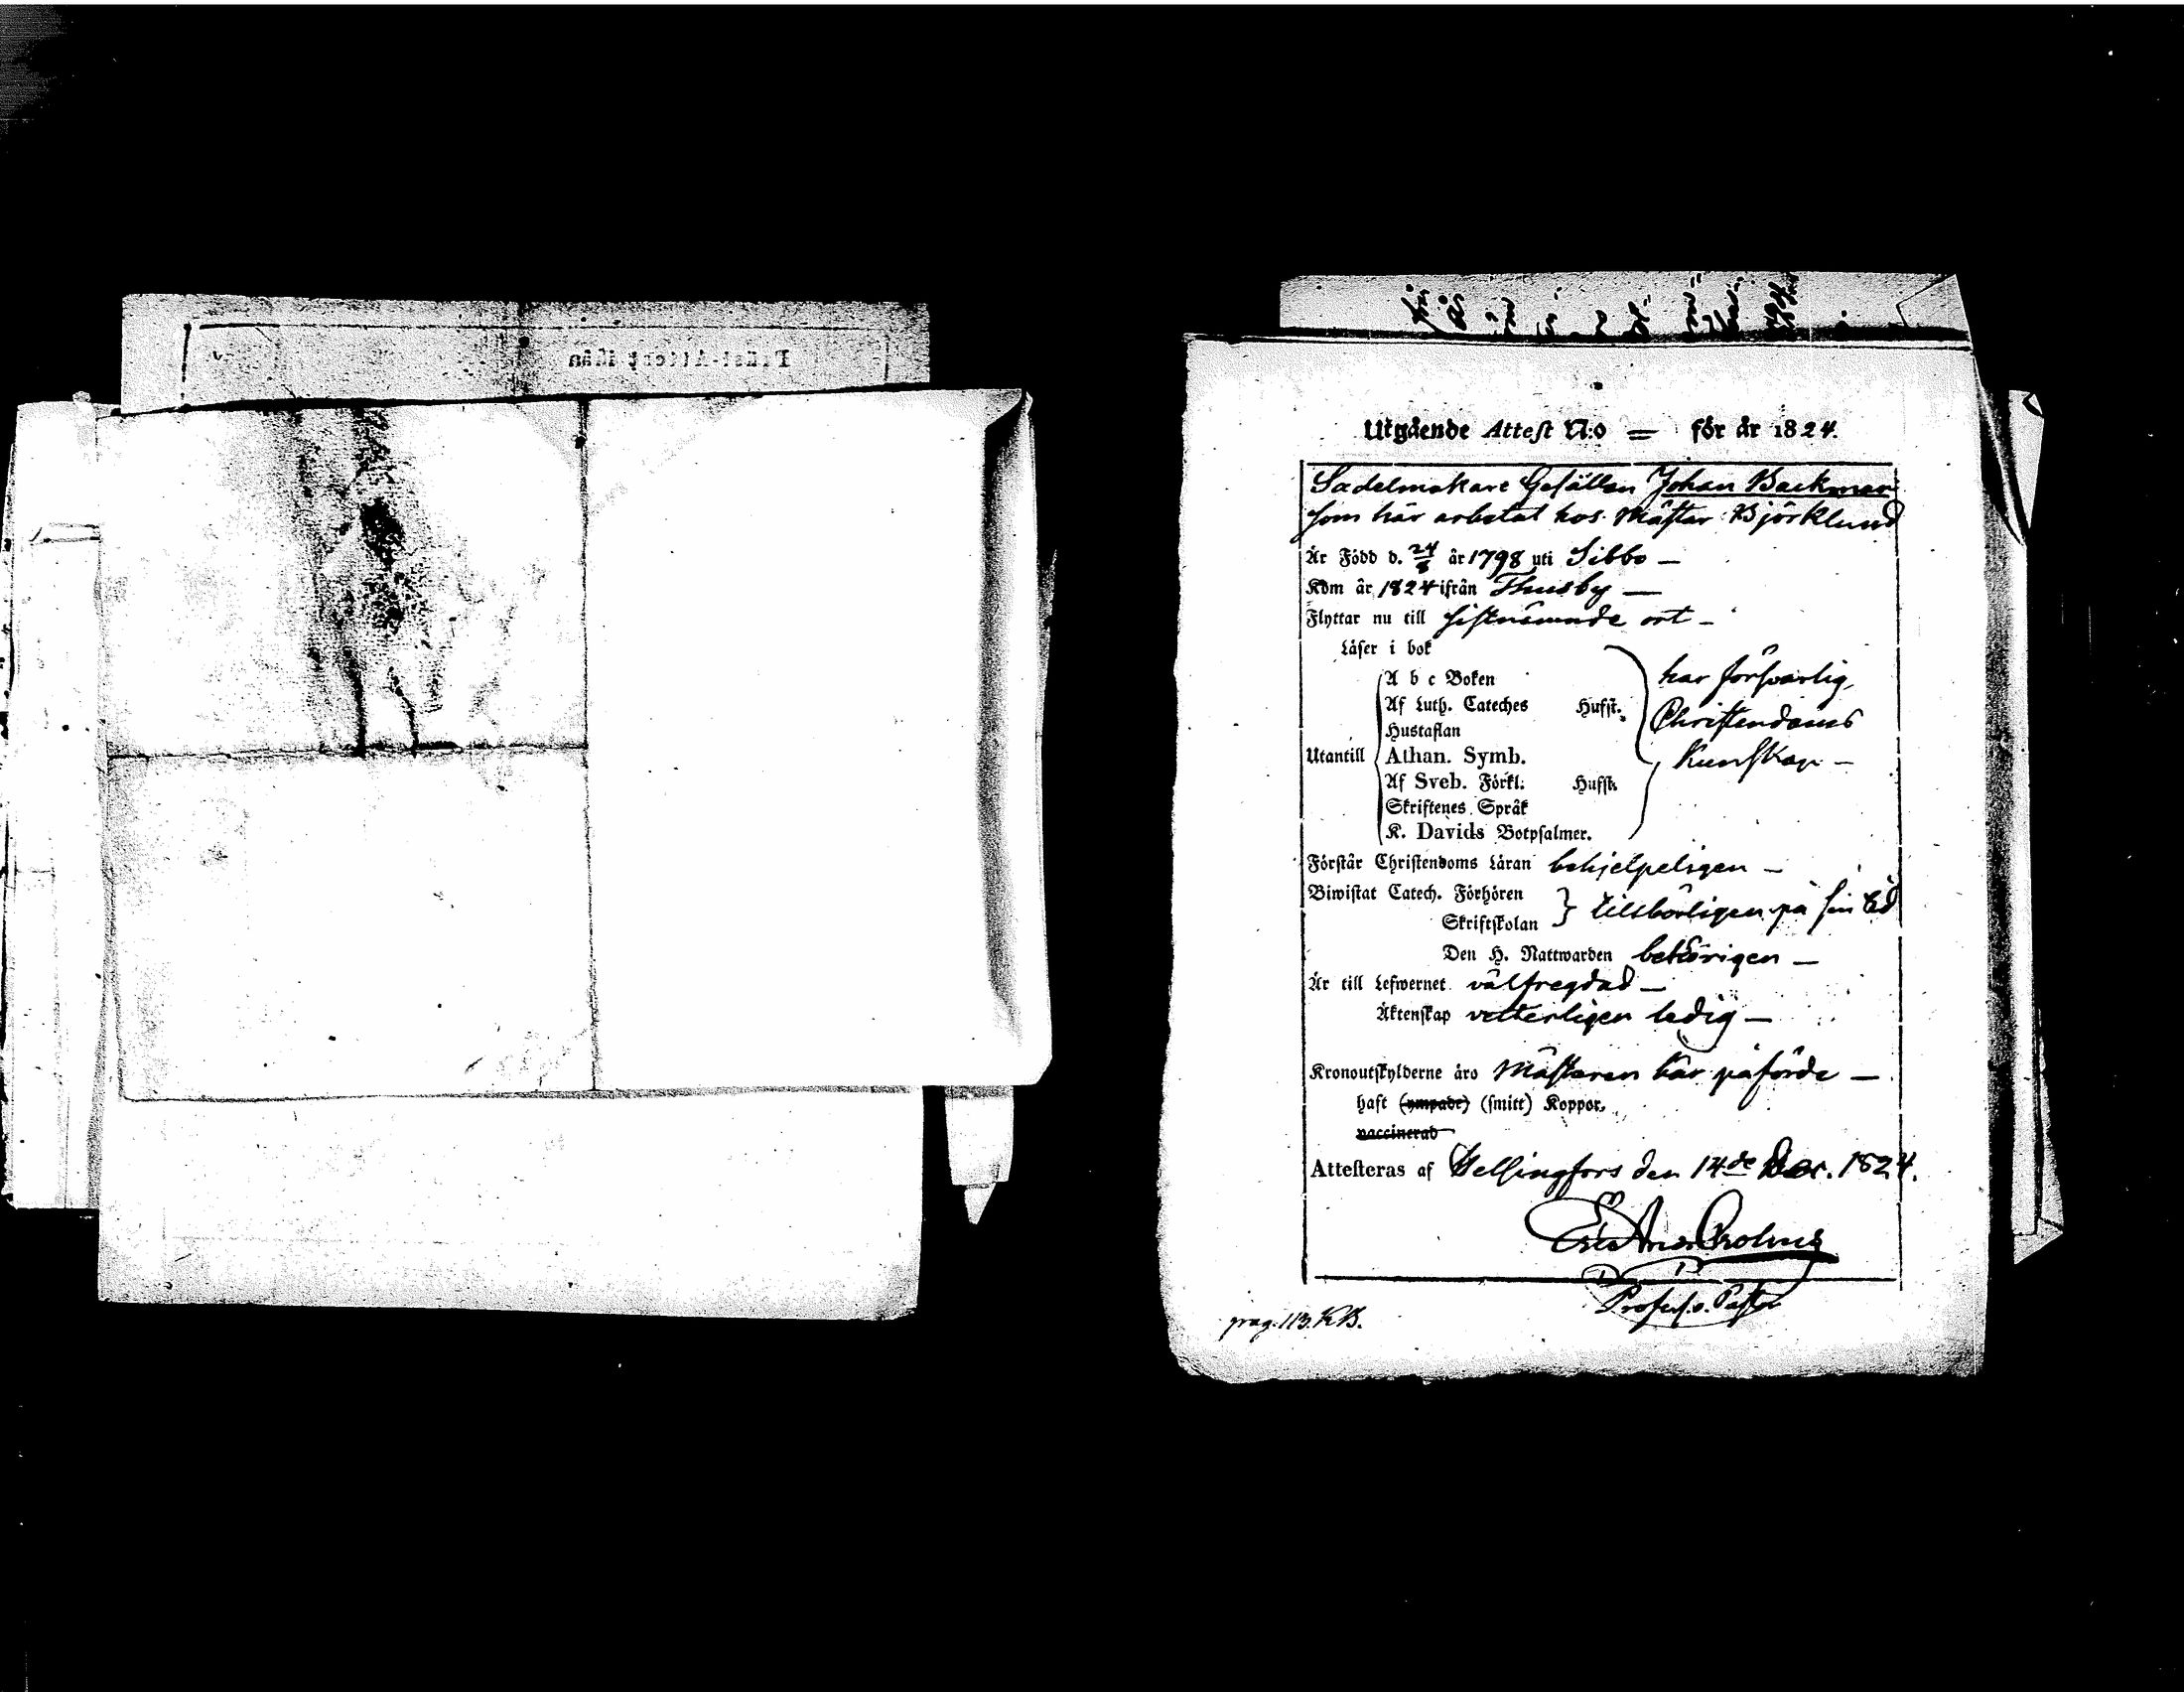 Utgående Attest N:o = för år 1824.
Sadelmakare Gesällen Johan Backman
som här arbetat hos Mästar Björklund
Är Född d. 24/8 år 1798 uti Sibbo —
Kom år 1824 ifrån Thusby —
Flyttar nu till sistnämnde ort —
Läser i bok
A b c Boken har försvarlig
Af Luth. Cateches Hufst. Christendoms
Hustaflan
Utantill Athan. Symb. Kunskap —
Af Sveb. Förkl. Hufst.
Skriftenes Språk
K. Davids Botpsalmer.
Förstår Christendoms Läran behjelpeligen —
Biwistat Catech. Förhören
Skriftskolan } tilbörligen på sin tid
Den H. Nattwarden behörigen —
Är till Lefwernet välfregdad —
Äktenskap vetterligen ledig —
Kronoutskylderne äro Mästaren här påförde —
haft (ympade) (smitt) Koppor.
vaccinerad
Attesteras af Helsingfors den 14de Dec. 1824.
Crohns
Profess. o. Pastor
pag. 113. KB.